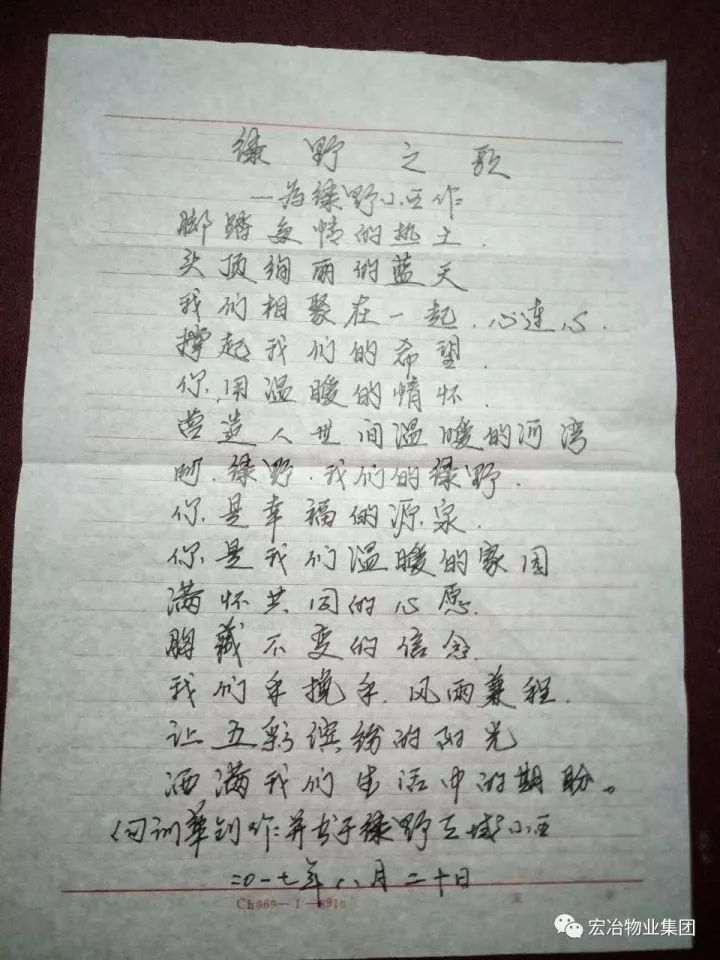 绿野之歌
一为绿野小区作
脚踏多情的热土.
头顶绚丽的蓝天
我们相聚在一起.心连心.
撑起我们的希望.
你.用温暖的情怀.
营造人世间温暖的河湾
啊.绿野.我们的绿野.
你.是幸福的源泉.
你.是我们温暖的家园
满怀共同的心愿.
胸藏不变的信念.
我们手挽手.风雨兼程.
让五彩缤纷的阳光
洒满我们生活中的期盼。
训华创作并书于绿野 域小区
二〇一七年八月二十日
Ch069—1—8910
宏冶物业集团